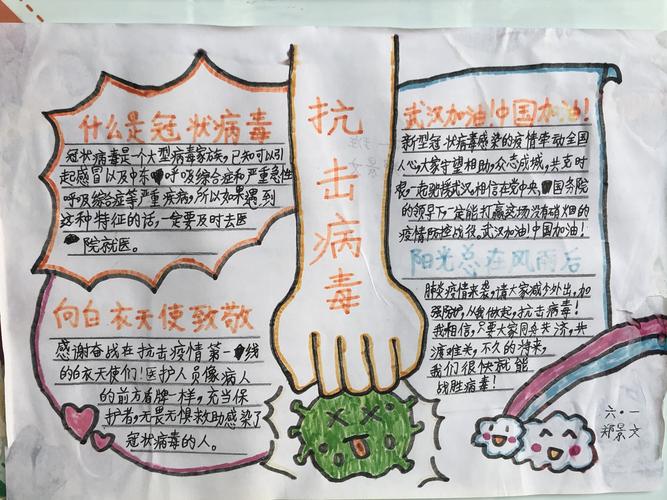 什么是冠状病毒
冠状病毒是一个大型病毒家族,已知可以引
起感冒以及中东呼吸综合征和严重急性
呼吸综合症等严重疾病,所以如果遇到
这种特征的话,一定要及时去医
院就医。
向白衣天使致敬
感谢奋战在抗击疫情第一线
的白衣天使们!医护人员像病人
的前方盾牌一样,充当保
护者,无畏无惧救助感染了
冠状病毒的人。
抗
击
病
毒
武汉加油!中国加油!
新型冠状病毒感染的疫情牵动全国
人心,大家守望相助,众志成城,共克时
艰,一起驰援武汉,相信在党中央,国务院
的领导下,一定能打赢这场没有硝烟的
疫情防控战役。武汉加油!中国加油!
阳光总在风雨后
肺炎疫情来袭,请大家减少外出,加
强防护,从我做起,抗击病毒!
我相信,只要大家同舟共济,共
渡难关,不久的将来,
我们很快就能
战胜病毒!
六·一
郑景文